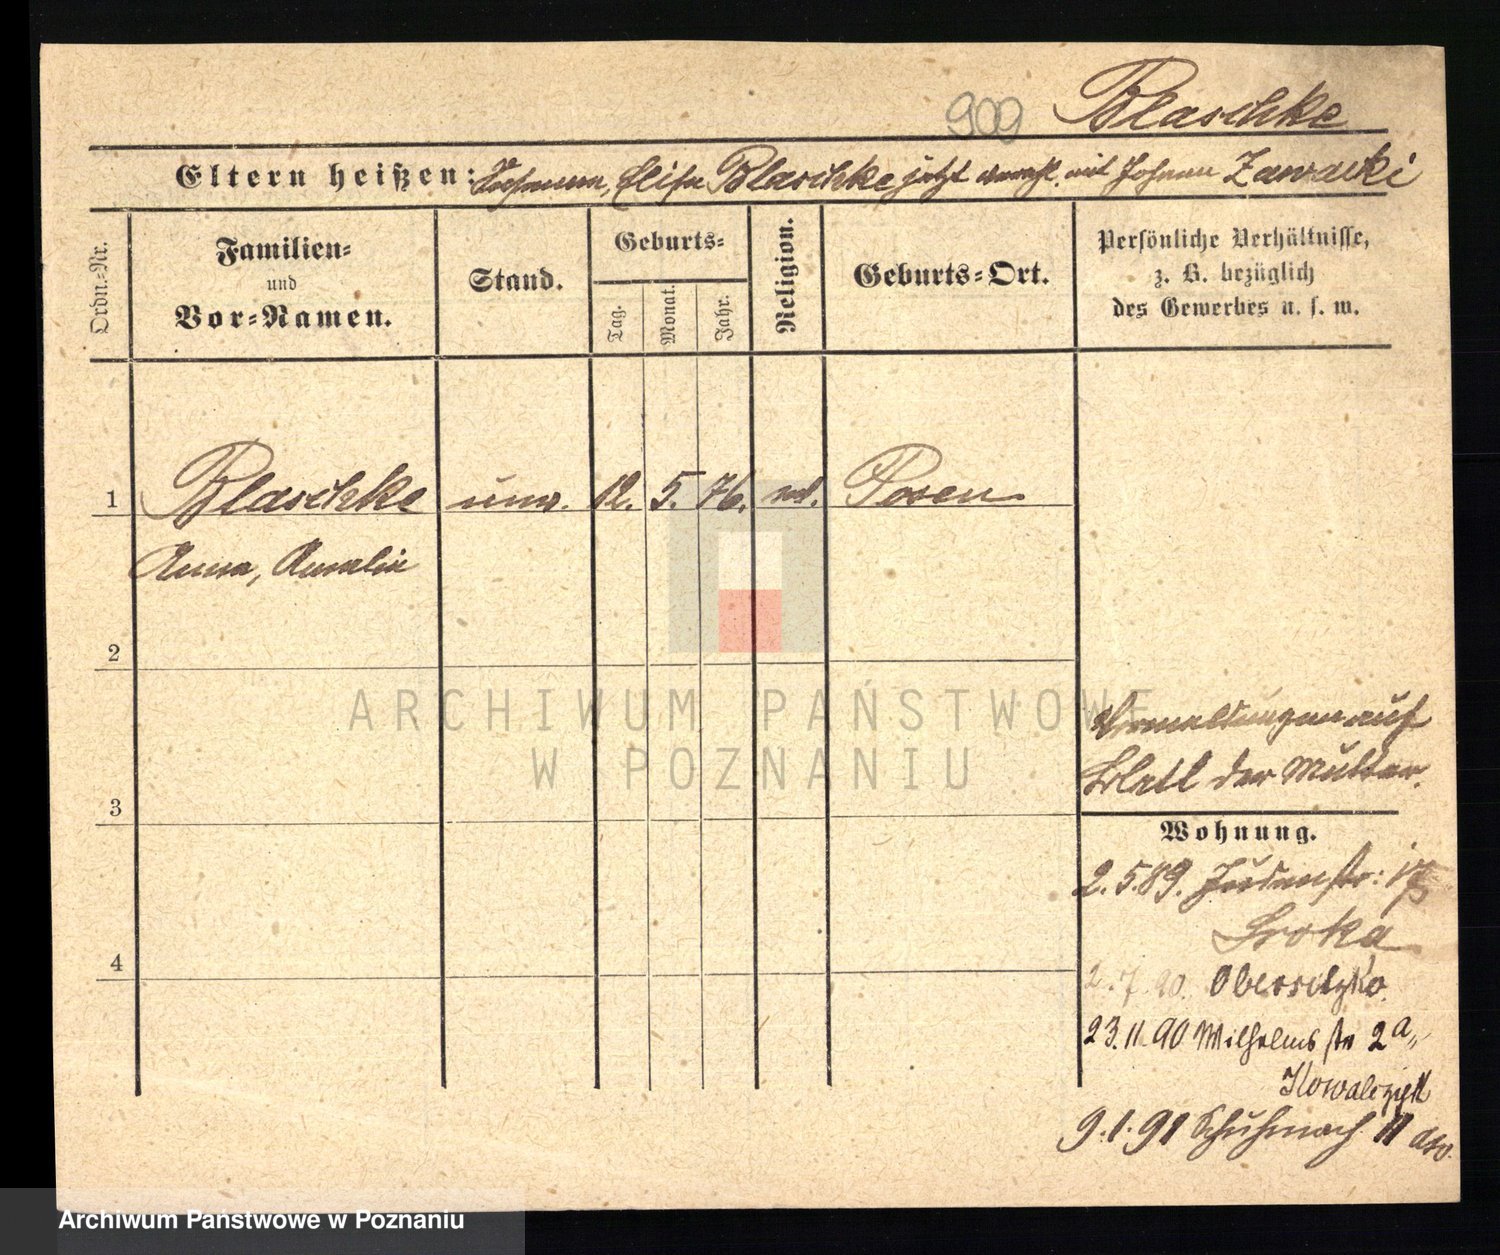 909 Blaschke
Eltern heißen: Elisa Blaschke jetzt mit Johann Zawacki
Ordn.-Nr.
Familien-
und
Vor-Namen.
Stand.
Geburts-
Tag.
Monat.
Jahr.
Religion.
Geburts-Ort.
Persönliche Verhältnisse,
z. B. bezüglich
des Gewerbes u. s. w.
1 Blaschke unv. 12. 5. 76. Posen
Anna, Amalie
2
3
4
auf
Blatt der Mutter.
Wohnung.
2.5.89. Judenstr: 17
Sroka
2.7.90. Obersitzko
23.11.90 Wilhelmsstr 2a
Kowalczyk
9.1.91 Schuhmach. 11
ARCHIWUM PAŃSTWOWE
W POZNANIU
Archiwum Państwowe w Poznaniu